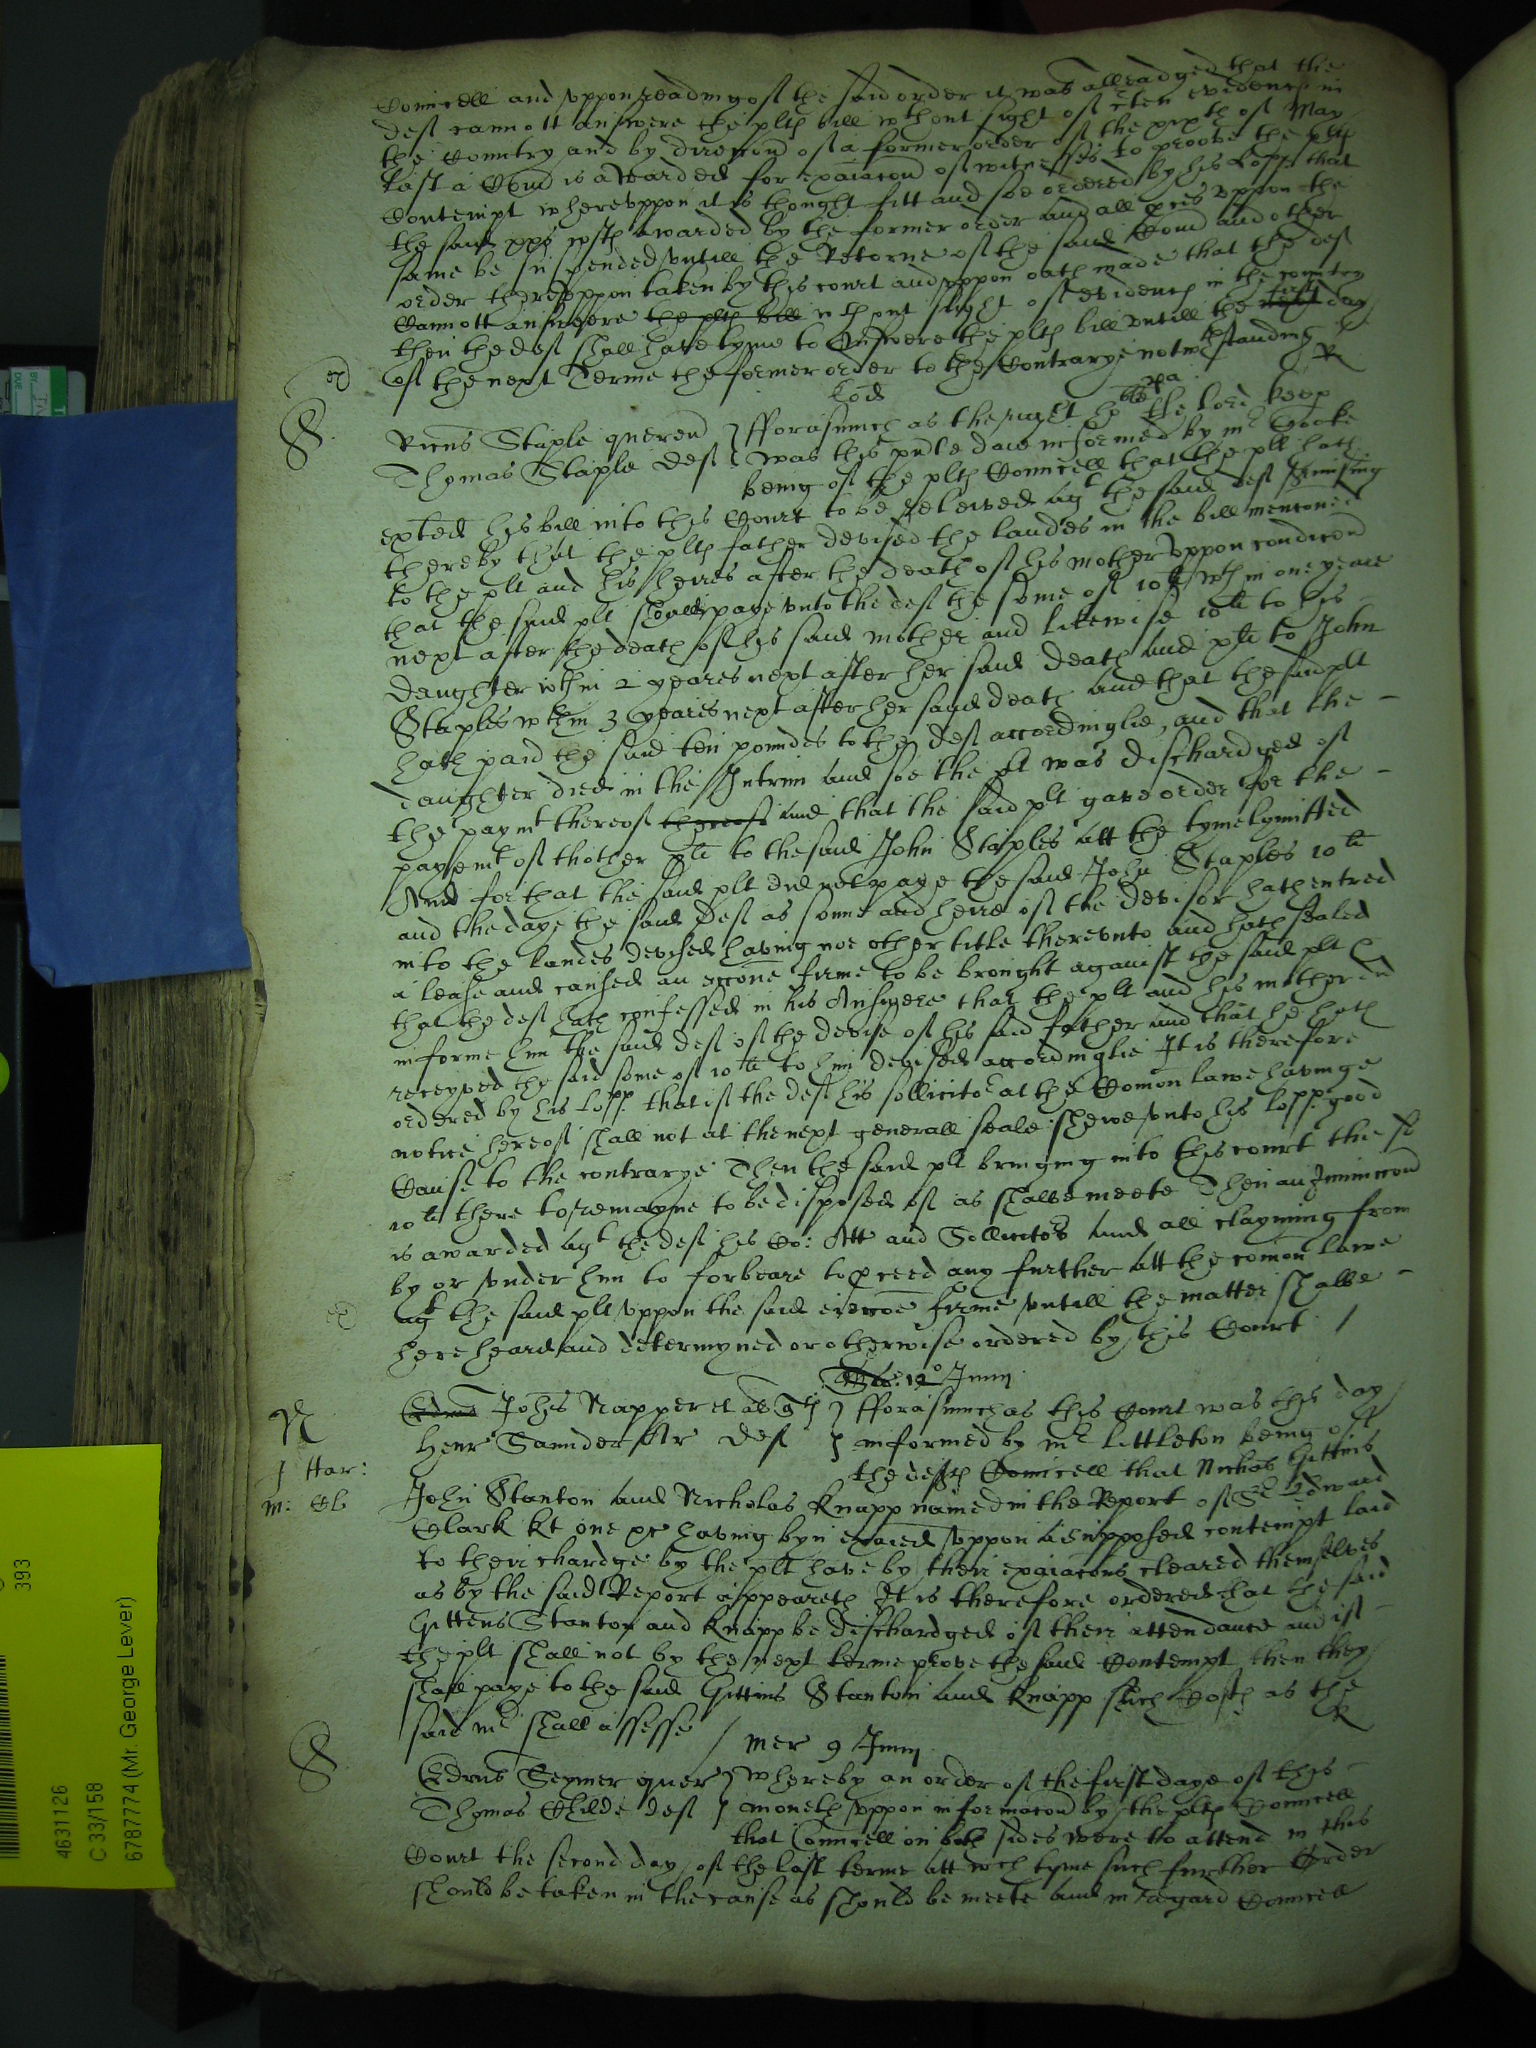 Councell and vppon readinge of the said order it was alleadged that the
deft cannott answere the plts bill wthout sight of cten evidences in
the Country and by direccon of a former order of the xixth of May
last a Comd is awarded for exaiacon of witnesses to proove the plts
Contempt wherevppon it is thought fitt and soe ordered by his Lopp that
the said costs awarded by the former order and all proces vppon the
same be suspended vntill the Retorne of the said Comd and other
order therevppon taken by this court and vppon oath made that the deft
Cannott answere the plts bill wthout sight of evidences in the country
then the deft shall have tyme to Answere the plts bill vntill the first day
of the next Terme the former order to the Contrarye notwthstanding
R
eod
Ricus Staple querend } fforasmuch as the right ho: the lord keep
Thomas Staple deft } was this pnte daie informed by mr Cooke
being of the plts Councell that the plt hath
exhted his bill into this Court to be releived agt the said deft Surmising
thereby that the plts father devised the landes in the bill mencioned
to the plt and his heires after the death of his mother vppon condicon
that the said plt should paye vnto the deft the some of 10li wthin one yeare
next after the death of his said mother and likewise 10li to his
daughter wthin 2 yeares next after her said death and xli to John
Staples wthin 3 yeares next after her said death and that the said plt
hath paid the said ten poundes to the deft accordinglie, and that the
daughter died in the Intrim and soe the plt was dischardged of
the paymt thereof thereof and that the said plt gave order for the
paysemt of thother xli to the said John Staples att the tyme lymitted
And for that the said plt did not paye the said John Staples 10li
and the daye the said deft as sonne and heire of the devisor hath entred
into the landes devised having noe other title therevnto and hath sealed
a lease and caused an eccone firme to be brought against the said plt
that the deft hath confessed in his Answere that the plt and his mother did
informe him the said deft of the devise of his said father and that he hath
receyved the said some of 10li to him devised accordinglie It is therefore
ordered by his Lopp: that if the deft his sollicitor at the Comon lawe havinge
notice hereof shall not at the next generall seale shewe vnto his Lopp: good
Cause to the contrarye Then the said plt bringing into this court the sd
10li there to remayne to be disposed of as shalbe meete Then an Iniunccon
is awarded agt the deft his Co: Att and Sollicitors and all clayming from
by or vnder him to forbeare to pceed any further att the comon lawe
agt the said plt vppon the said eieccoe firme vntill the matter shalbe
here heard and determyned or otherwise ordered by this Court /
12o Junij
Johes Napper et al qts } fforasmuch as this Court was this day
Henr Saunders Ar deft } informed by mr Littleton being of
the defts Councell that Nichas Gittins
John Stanton and Nicholas Knapp named in the Report of Sr Edward
Clark kt one &c having byn exaied vppon a supposed contempt laid
to their chardge by the plt have by their exaiacons cleared themselves
as by the said Report appeareth It is therefore ordered that the said
Gittens Stanton and Knapp be dischardged of their attendance and if
the plt shall not by the next terme prove the said Contempt then they
shall paye to the said Gittins Stanton and Knapp such Costs as the
said mr shall assesse /
R
Mer 9 Junij
Edrus Seymer quer } Whereby an order of the first daye of this
Thomas Childe deft } moneth vppon informacon by the plts Councell
that Councell on both sides were to attend in this
Court the second day of the last terme att wch tyme such further Order
should be taken in the cause as should be meete and in regard Councell
S
N
J Har:
M: Cl
S
393
4631126
C 33/158
6787774 (Mr. George Lever)